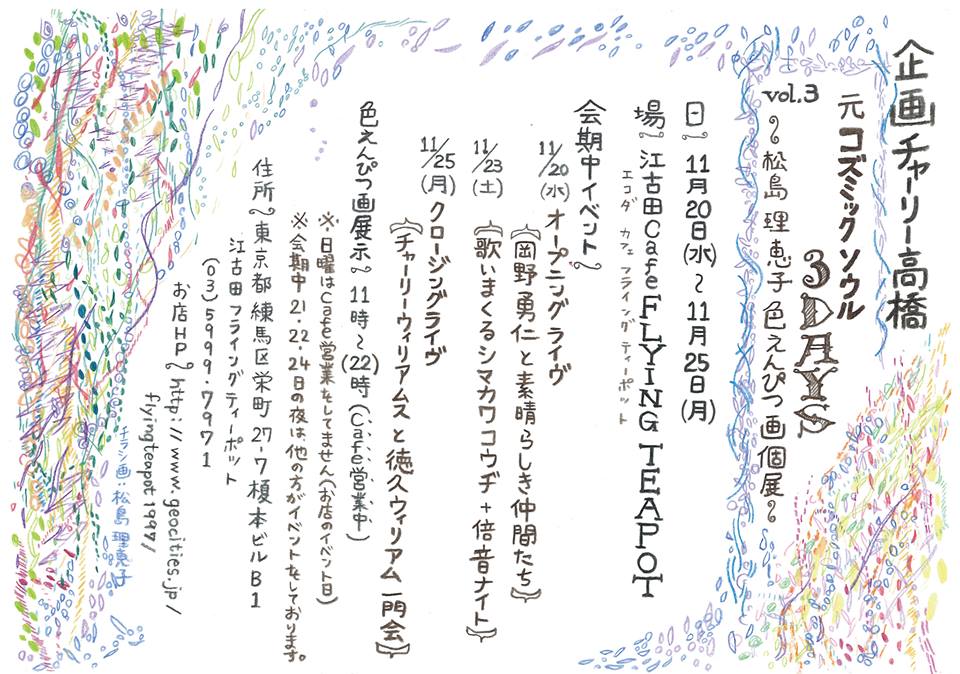 企画チャーリー高橋
元コズミックソウル
3DAYS
vol.3
～松島 理恵子 色えんぴつ画個展～
日～ 11月20日(水)～11月25日(月)
場～江古田Cafe FLYING TEAPOT
エコダ カフェ フライングティーポット
会期中イベント～
11/20(水) オープニングライヴ
{岡野勇仁と素晴らしき仲間たち}
11/23(土) {歌いまくるシマカワコウヂ+倍音ナイト}
11/25(月) クロージングライヴ
{チャーリーウィリアムスと徳久ウィリアム一門会}
色えんぴつ画展示～ 11時～(22)時(Cafe営業中)
※日曜はCafe営業をしてません(お店のイベント日)
※会期中21・22・24日の夜は他の方がイベントをしております。
住所～東京都練馬区栄町27-7榎本ビルB1
江古田フライングティーポット
(03)5999・7971
お店HP～http://www.geocities.jp/
flyingteapot1997/
チラシ画:松島 理恵子